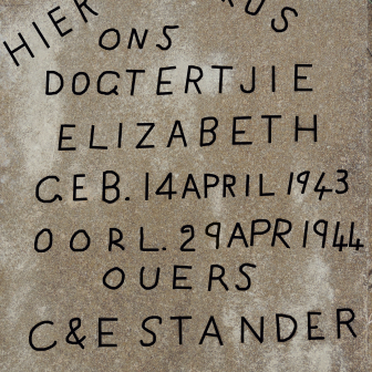 HIER RUS
ONS
DOGTERTJIE
ELIZABETH
GEB. 14 APRIL 1943
OORL. 29 APR 1944
OUERS
C & E STANDER